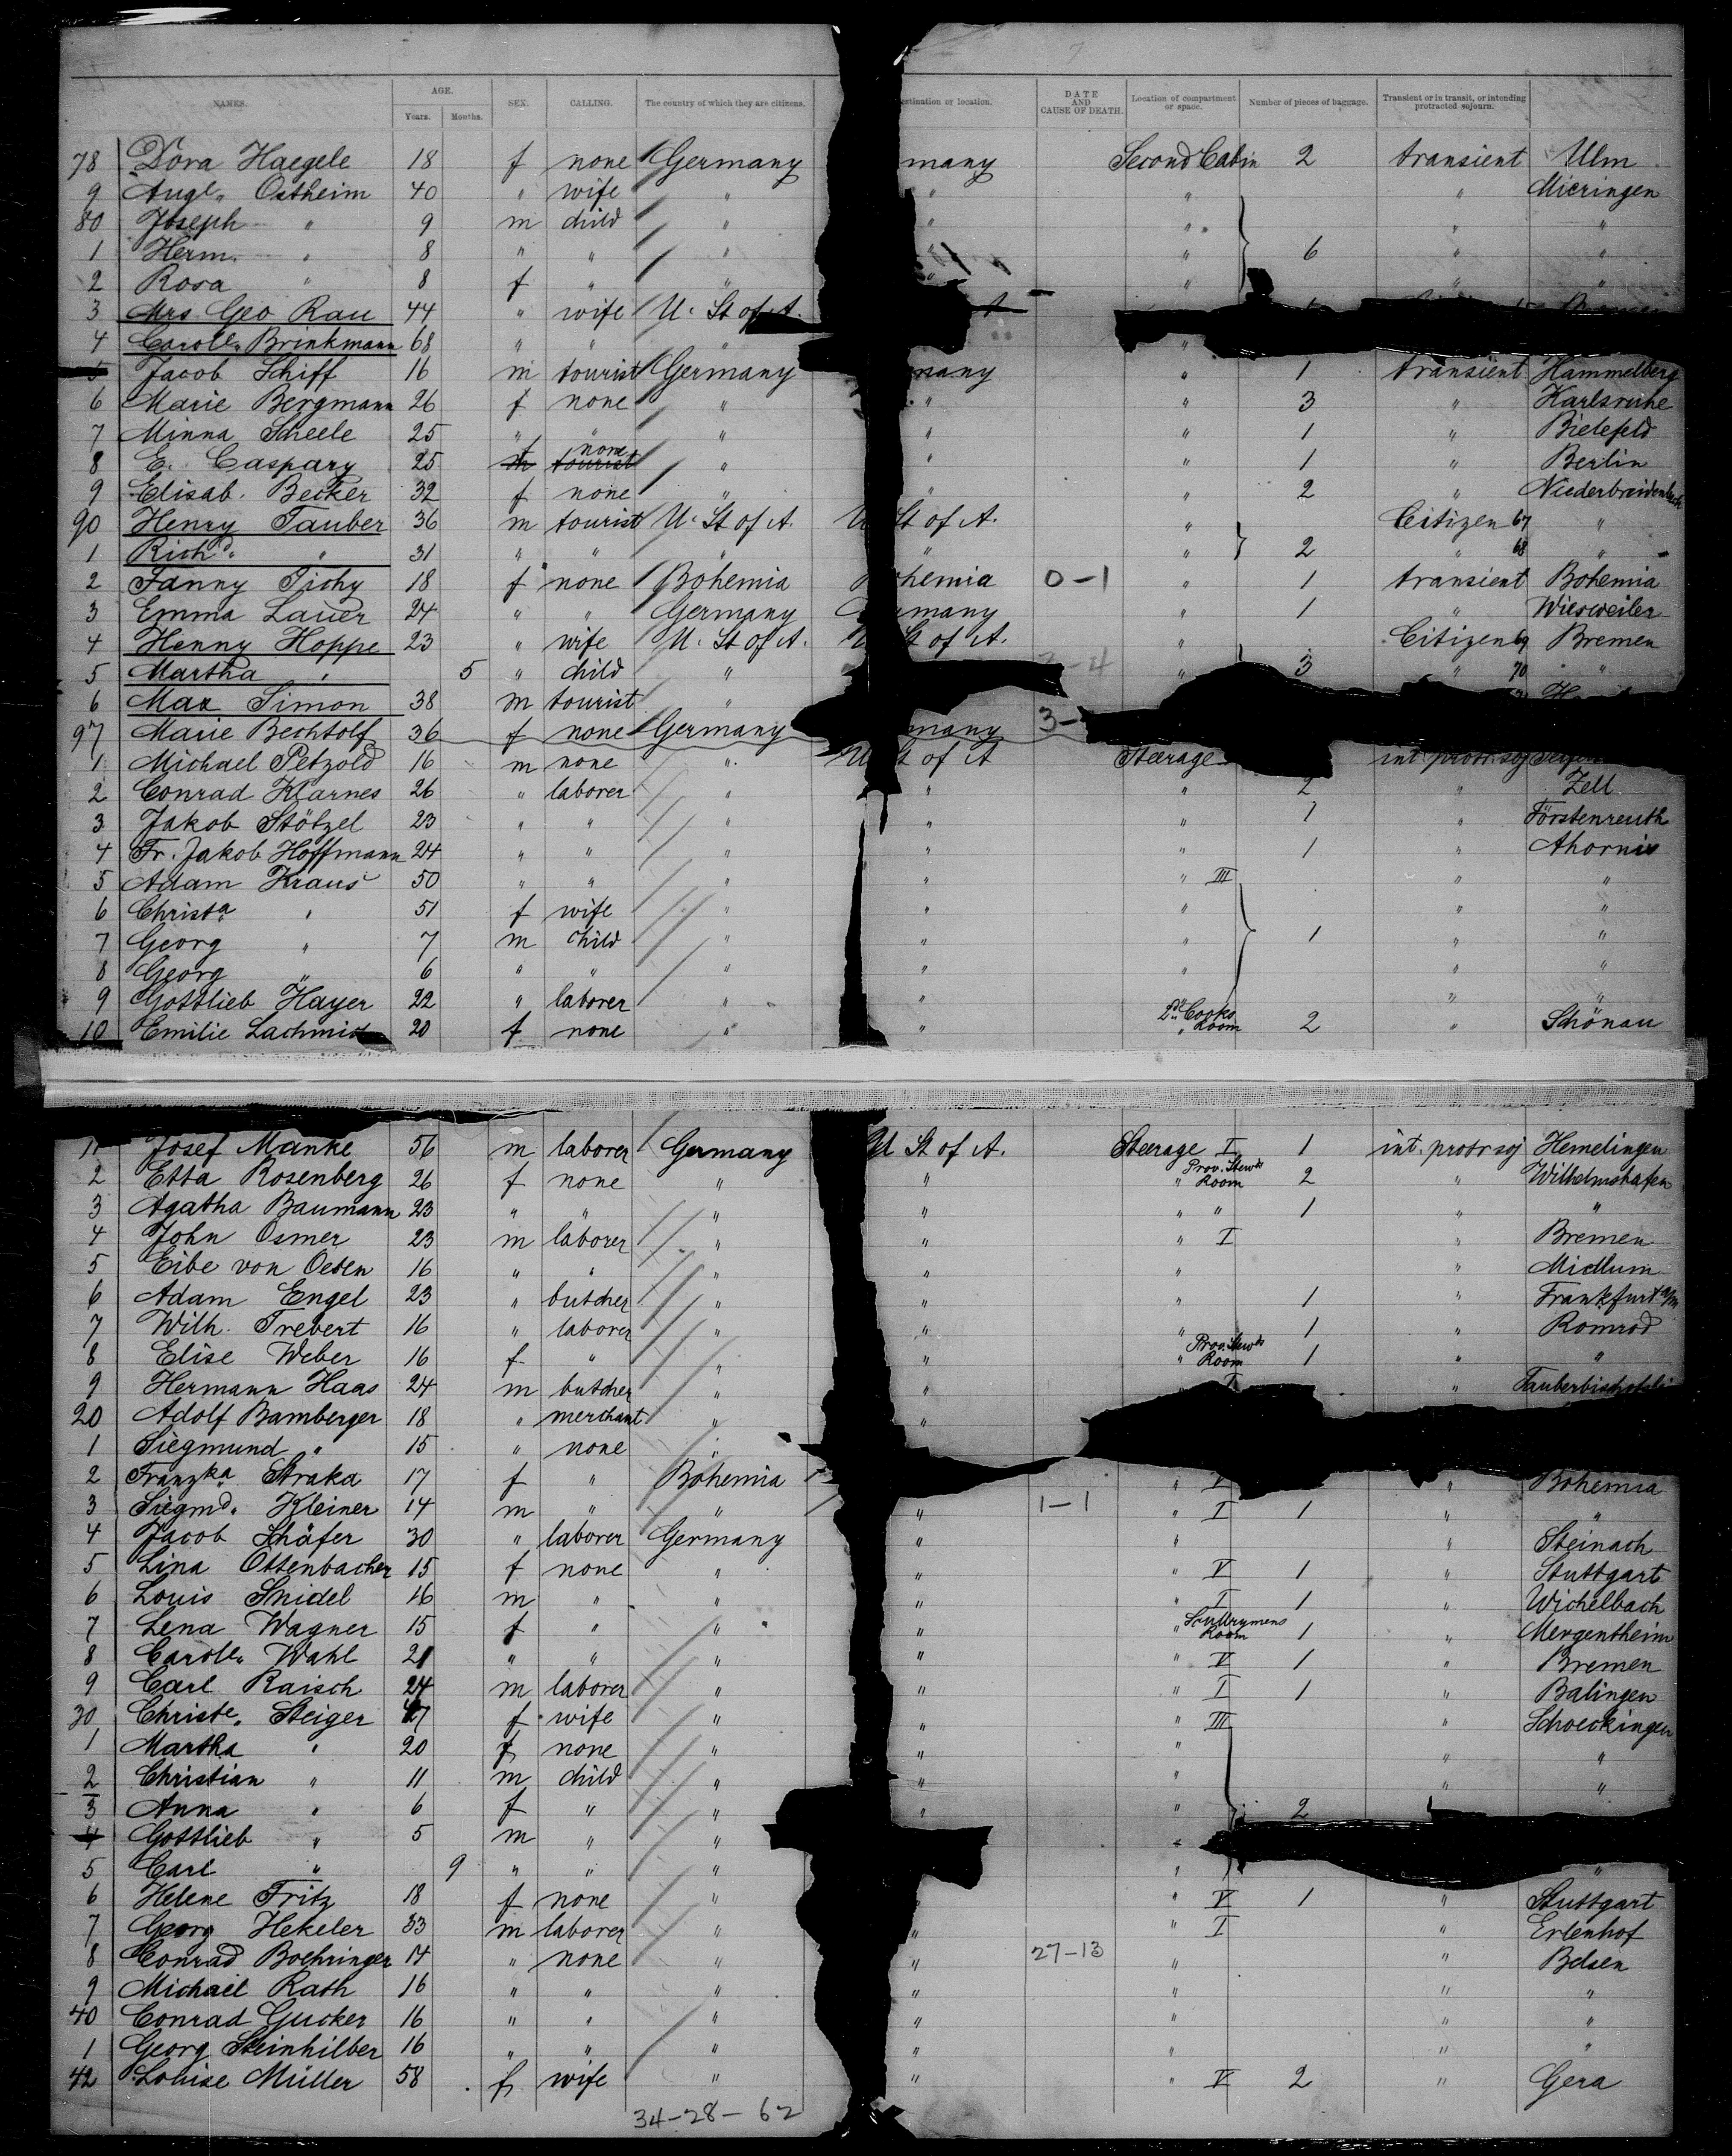 7
NAMES. AGE. Years. Months. SEX. CALLING. The country of which they are citizens. estination or location. DATE AND CAUSE OF DEATH. Location of compartment or space. Number of pieces of baggage. Transient or in transit, or intending protracted sojourn.
78 Dora Haegele 18 f none Germany many Second Cabin 2 transient Ulm
9 Augte. Ostheim 40 " wife " " " " Mieringen
80 Joseph " 9 m child " " " " "
1 Herm. " 8 " " " " " 6 " "
2 Rosa " 8 f " " " " " "
3 Mrs Geo Rau 44 " wife U. St of A.
4 Carole. Brinkmann 68 " " " "
5 Jacob Schiff 16 m tourist Germany many " 1 transient Hammelberg
6 Marie Bergmann 26 f none " " " 3 " Karlsruhe
7 Minna Scheele 25 " " " " " 1 " Bielefeld
8 E. Caspary 25 f none tourist " " " 1 " Berlin
9 Elisab. Becker 32 f none " " " 2 " Niederbreidenbach
90 Henry Tauber 36 m tourist U. St of A. U St of A. " Citizen 67 "
1 Richd. " 31 " " " " " 2 " 68 "
2 Fanny Tichy 18 f none Bohemia hemia 0-1 " 1 transient Bohemia
3 Emma Lauer 24 " " Germany many " 1 " Wiesweiler
4 Henny Hoppe 23 " wife U. St of A. U St of A. " Citizen 69 Bremen
5 Martha " 5 " child " -4 " 3 " 70 "
6 Max Simon 38 m tourist "
97 Marie Bechtolf 36 f none Germany many 3-
1 Michael Petzold 16 m none " U St of A Steerage int protr. soj
2 Conrad Klarnes 26 " laborer " " " 2 " Zell
3 Jakob Stötzel 23 " " " " " 1 " Förstenreuth
4 Fr. Jakob Hoffmann 24 " " " " " 1 " Ahornis
5 Adam Kraus 50 " " " " " III " "
6 Christa " 51 f wife " " " " "
7 Georg " 7 m child " " " 1 " "
8 Georg " 6 " " " " " " "
9 Gottlieb Hayer 22 " laborer " " " "
10 Emilie Lachmid 20 f none " " 2d Cooks Room 2 " Schönau
11 Josef Manke 56 m laborer Germany U St of A. Steerage I 1 int. protr soj Hemelingen
2 Etta Rosenberg 26 f none " " " Prov. Stewds Room 2 " Wilhelmshafen
3 Agatha Baumann 23 " " " " " " 1 " "
4 John Osmer 23 m laborer " " " I " Bremen
5 Eibe von Oesen 16 " " " " " " Midlum
6 Adam Engel 23 " butcher " " " 1 " Frankfurt a/m
7 Wilh. Trebert 16 " laborer " " " 1 " Romrod
8 Elise Weber 16 f " " " " Prov. Stewds Room 1 " "
9 Hermann Haas 24 m butcher " " " Tauberbischofsh
20 Adolf Bamberger 18 " merchant " "
1 Siegmund " 15 " none "
2 Franzka. Straka 17 f " Bohemia " V " Bohemia
3 Siegmd. Kleiner 14 m " " " 1-1 " I 1 " "
4 Jacob Schäfer 30 " laborer Germany " " " Steinach
5 Lina Ottenbacher 15 f none " " " V 1 " Stuttgart
6 Louis Snidel 16 m " " " " I 1 " Wichelbach
7 Lena Wagner 15 f " " " " Scullerymens Room 1 " Mergentheim
8 Carole. Wahl 21 " " " " " V 1 " Bremen
9 Carl Raisch 24 m laborer " " " I 1 " Balingen
30 Christe. Steiger 47 f wife " " " III " Schoeckingen
1 Martha " 20 f none " " " " "
2 Christian " 11 m child " " " " "
3 Anna " 6 f " " " " 2
4 Gottlieb " 5 m " " "
5 Carl " 9 " " " " "
6 Helene Fritz 18 f none " " " V 1 " Stuttgart
7 Georg Hekeler 33 m laborer " " " I " Erlenhof
8 Conrad Boehringer 14 " none " " 27-13 " " Belsen
9 Michael Rath 16 " " " " " " "
40 Conrad Gucker 16 " " " " " " "
1 Georg Steinhilber 16 " " " " " " "
42 Louise Müller 58 f wife " " " V 2 " Gera
34-28-62